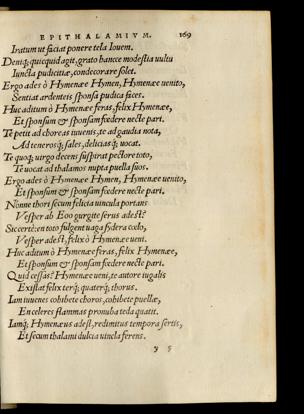 EPITHALAMIVM. 169
Iratum ut faciat ponere tela Iouem.
Deniq; quicquid agit, grato hancce modestia uultu
Iuncta pudicitiæ, condecorare solet.
Ergo ades ô Hymenæe Hymen, Hymenæe uenito,
Sentiat ardenteis sponsa pudica faces.
Huc aditum ô Hymenæe feras, felix Hymenæe,
Et sponsum & sponsam fœdere necte pari.
Te petit ad choreas iuuenis, te ad gaudia nota,
Ad teneros q; sales, delicias q; uocat.
Te quoq; uirgo decens suspirat pectore toto,
Te uocat ad thalamos nupta puella suos.
Ergo ades ô Hymenæe Hymen, Hymenæe uenito,
Et sponsum & sponsam fœdere necte pari.
Nonne thori secum felicia uincula portans
Vesper ab Eoo gurgite serus adest?
Sic certè: en toto fulgent uaga sydera cœlo,
Vesper adest, felix ô Hymenæe ueni.
Huc aditum ô Hymenæe feras, felix Hymenæe,
Et sponsum & sponsam fœdere necte pari.
Quid cessas? Hymenæe ueni, te autore iugalis
Existat felix terq; quaterq; thorus.
Iam iuuenes cohibete choros, cohibete puellæ,
En celeres flammas pronuba teda quatit.
Iamq; Hymenæus adest, redimitus tempora sertis,
Et secum thalami dulcia uincla ferens.
y 5